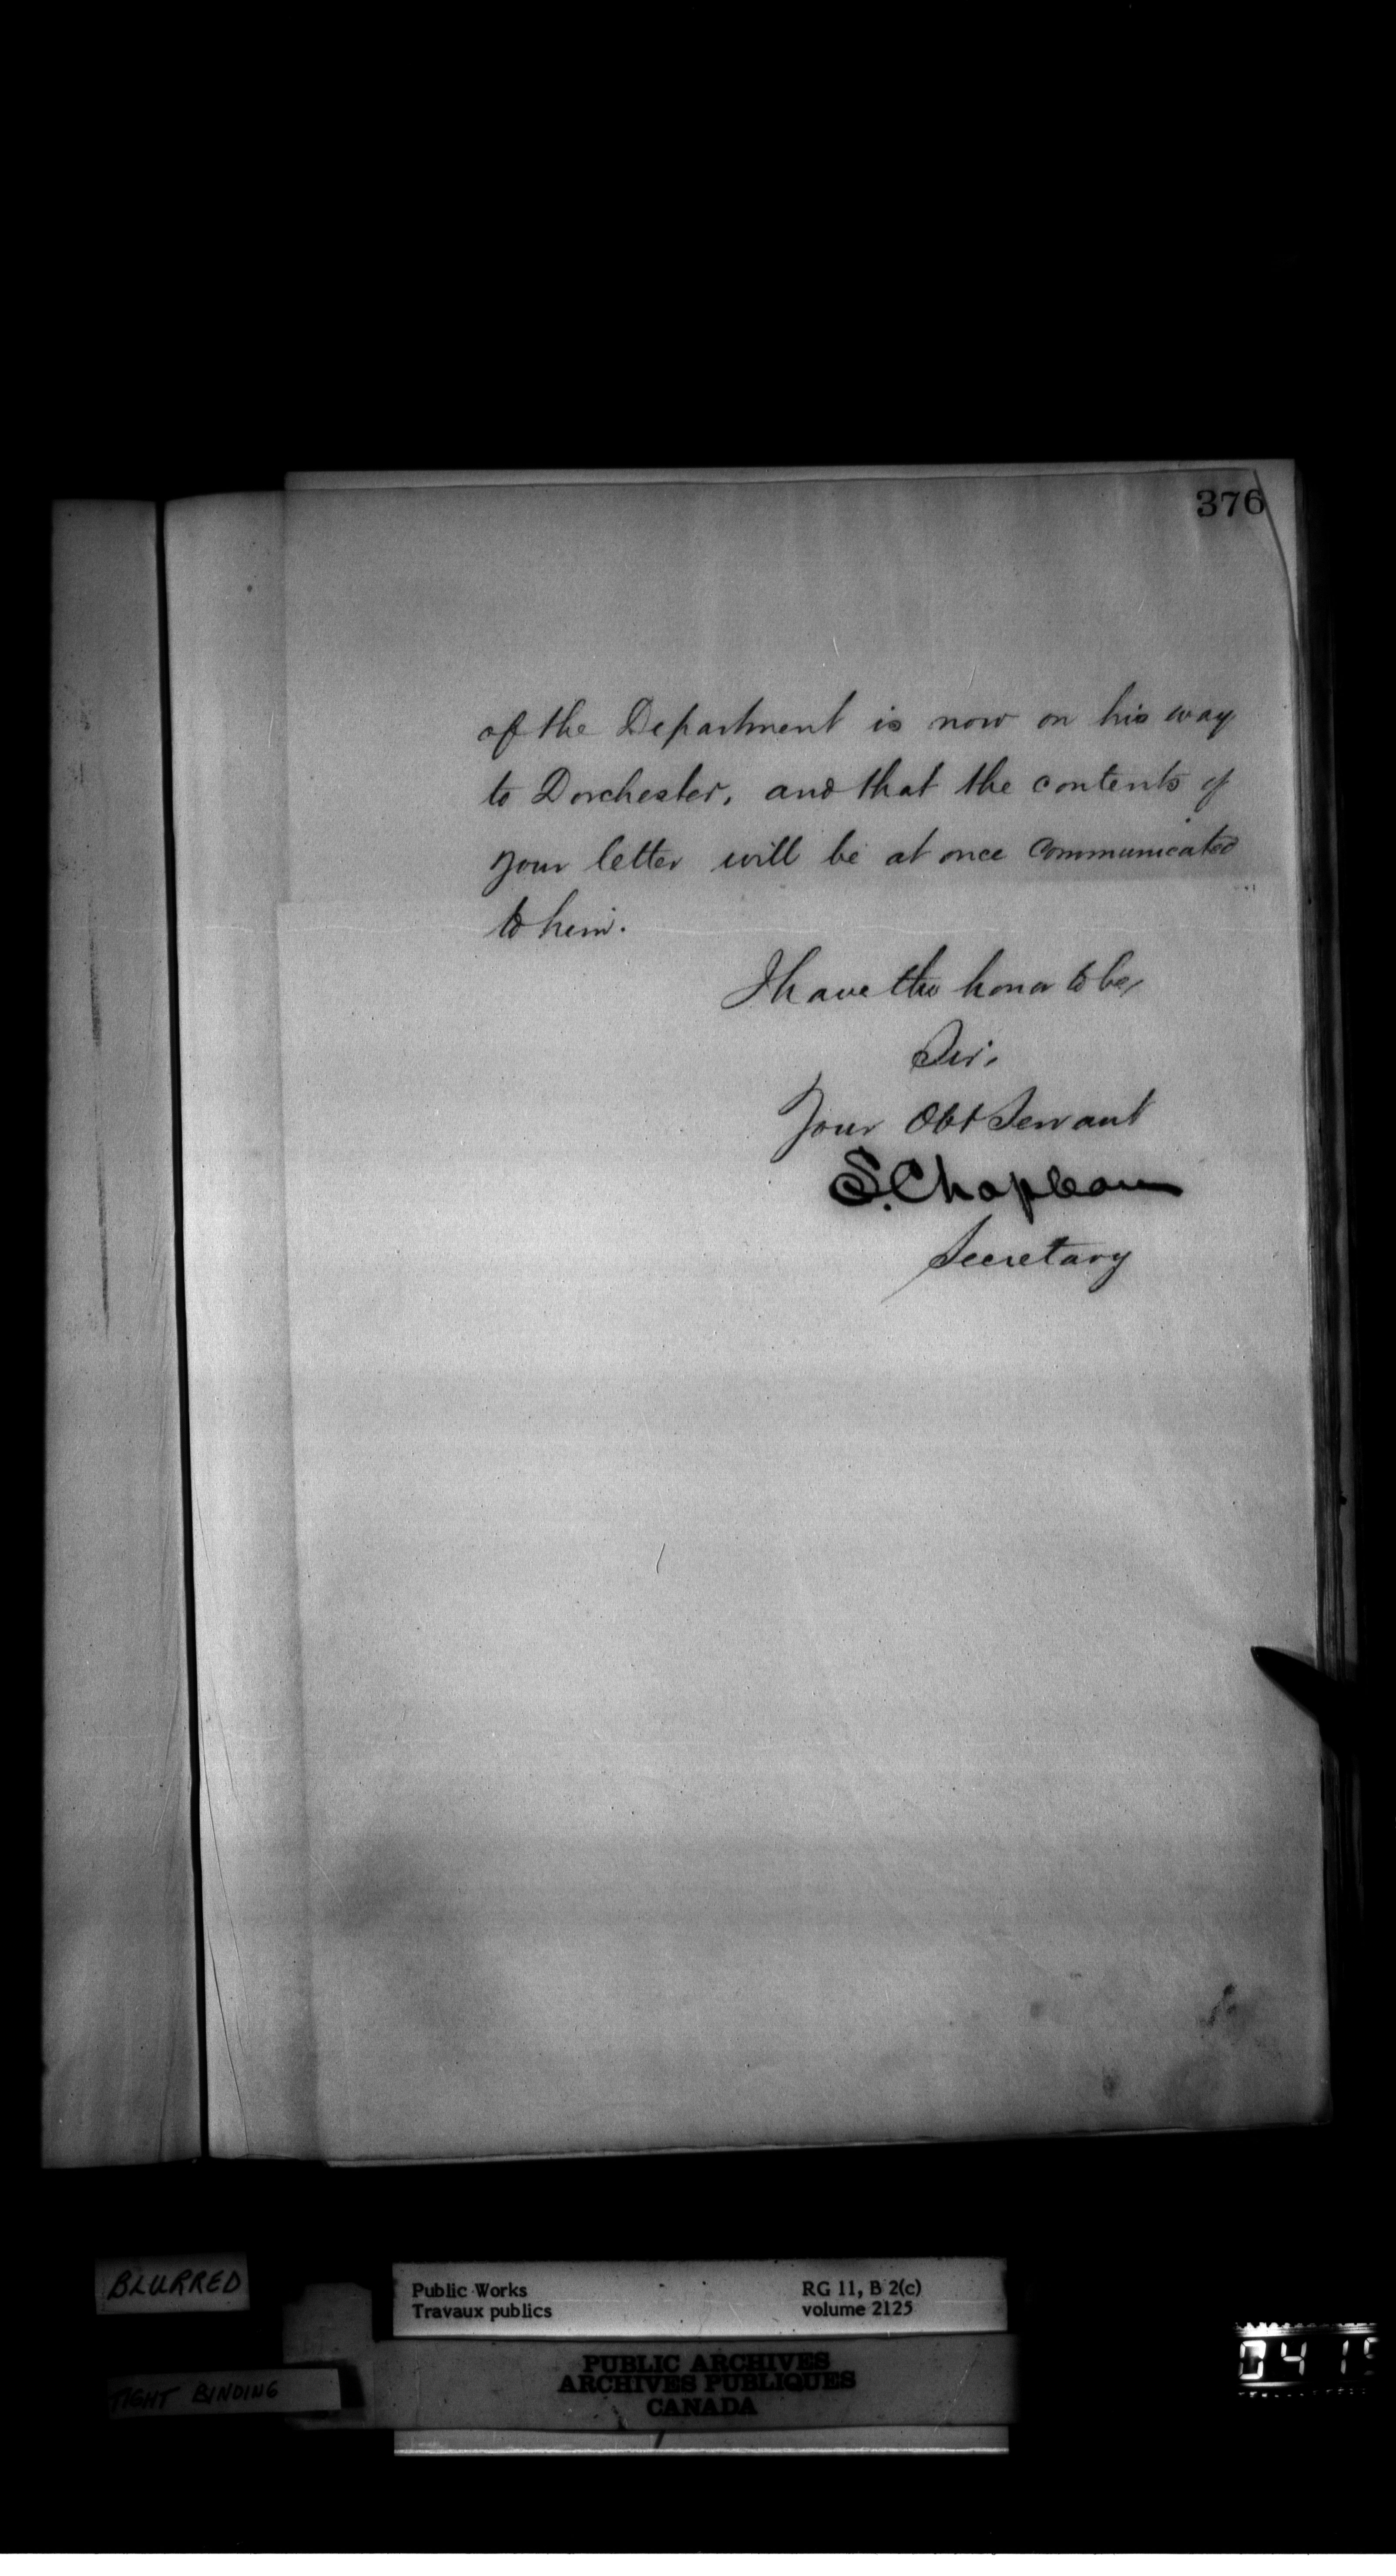 376
of the Department is now on his way
to Dorchester, and that the contents of
your letter will be at once communicated
to him.
I have the honor to be,
Sir,
Your Obt Servant
S. Chapleau
Secretary
BLURRED
TIGHT BINDING
Public Works
Travaux publics
RG 11, B 2(c)
volume 2125
PUBLIC ARCHIVES
ARCHIVES PUBLIQUES
CANADA